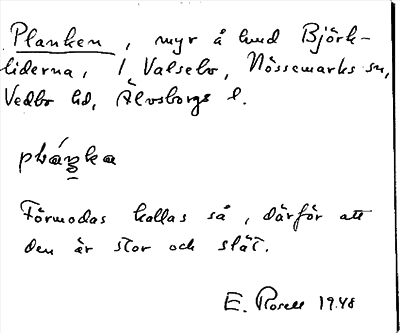 Planken, myr å hmd Björk-
liderna, / Valsebo, Nössemarks sn,
Vedbo hd, Älvsborgs l.
Förmodas kallas så, därför att
den är stor och slät.
E. Rosell 1948